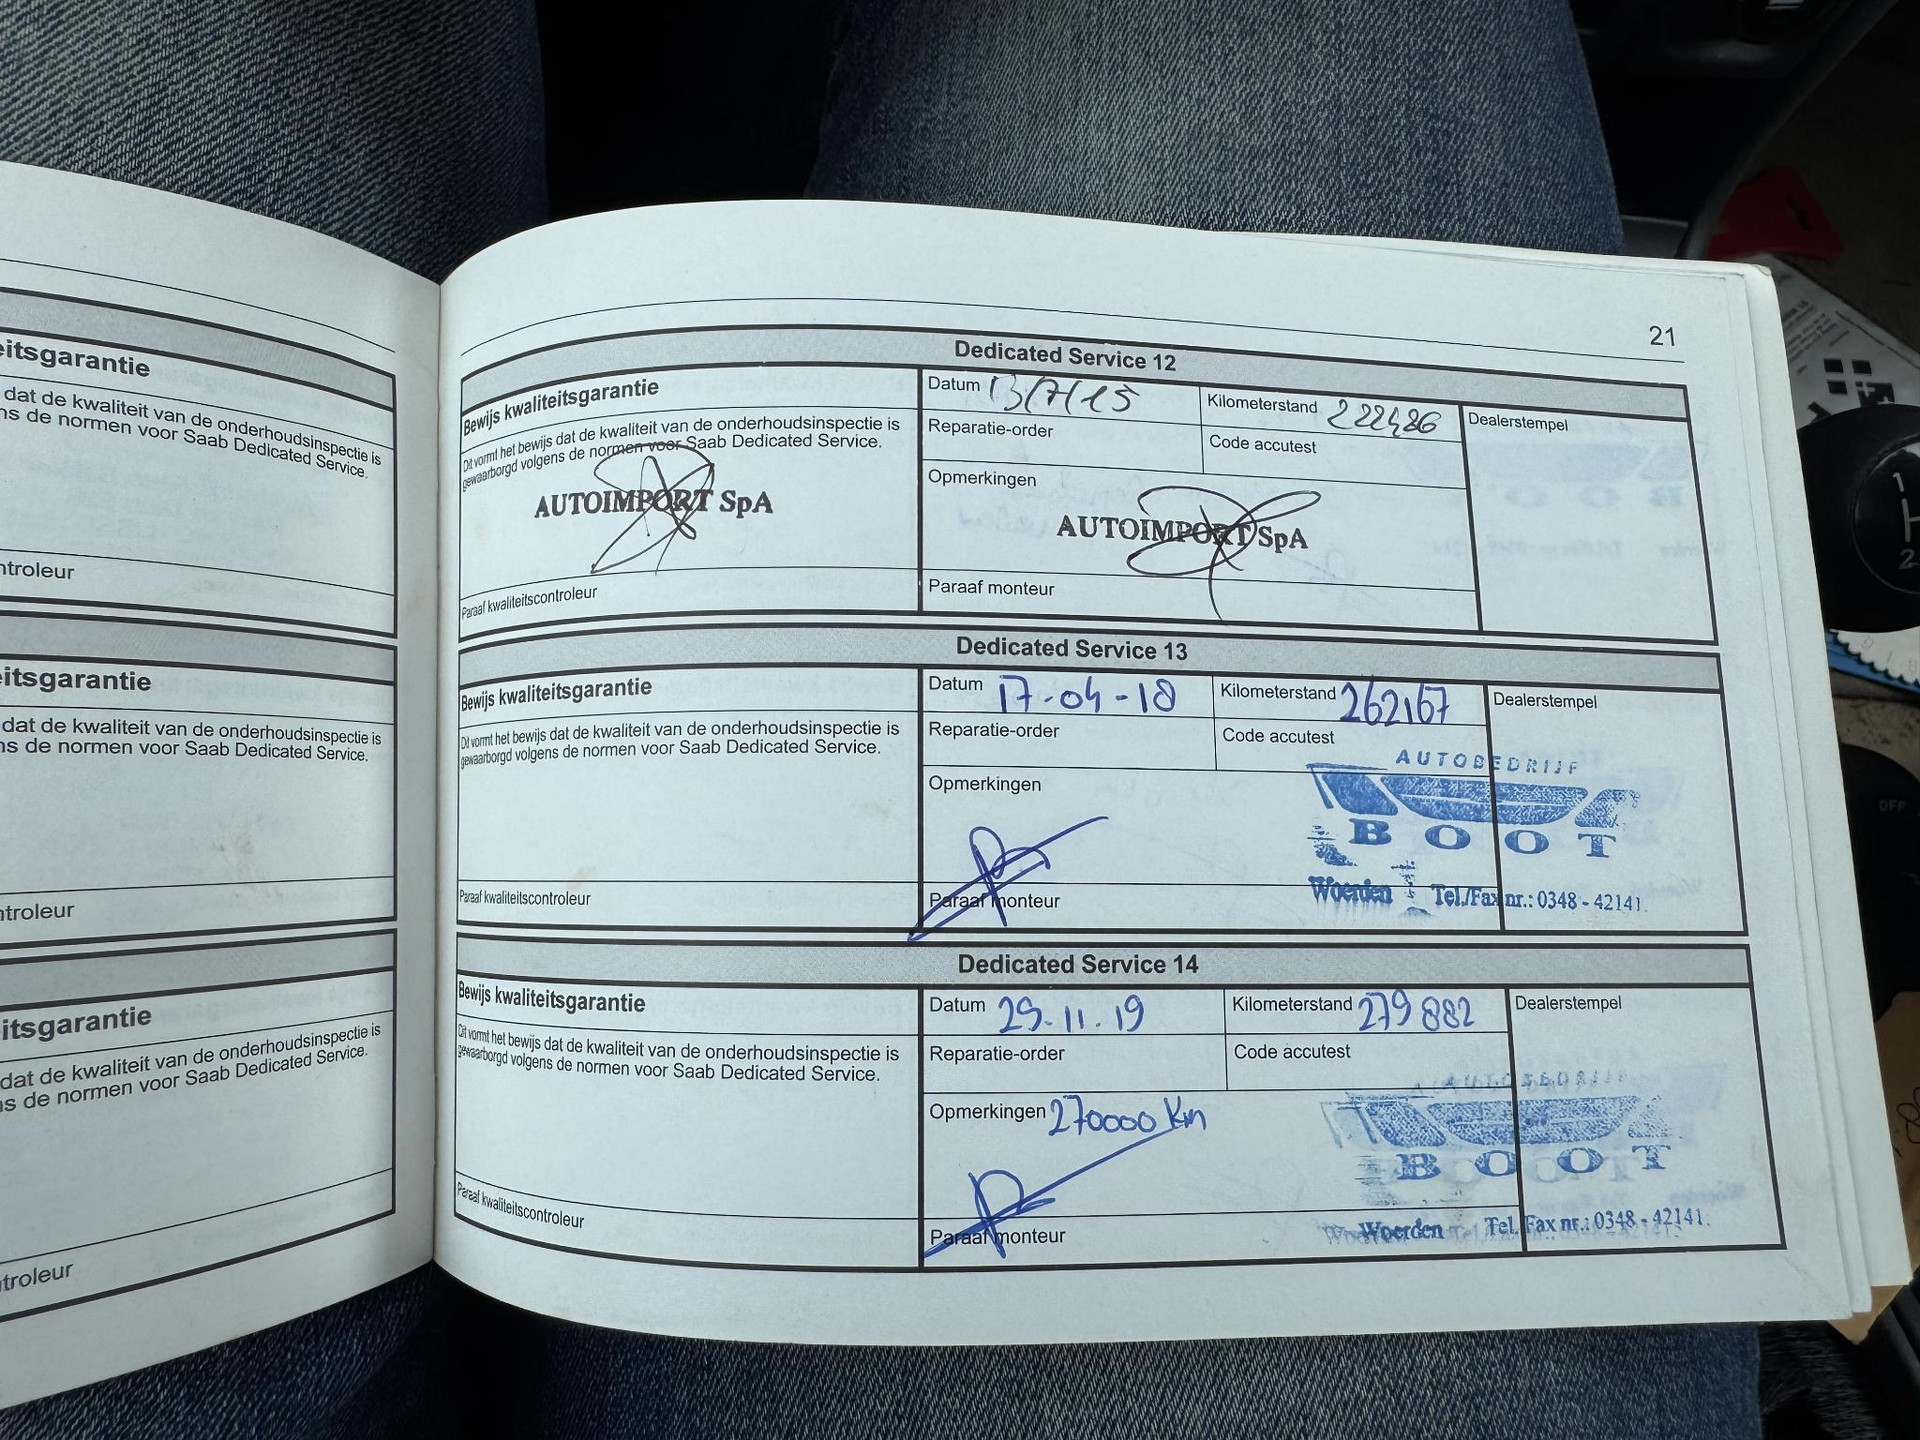 eitsgarantie
dat de kwaliteit van de onderhoudsinspectie is
ns de normen voor Saab Dedicated Service.
ntroleur
eitsgarantie
dat de kwaliteit van de onderhoudsinspectie is
ns de normen voor Saab Dedicated Service.
ntroleur
itsgarantie
dat de kwaliteit van de onderhoudsinspectie is
ns de normen voor Saab Dedicated Service.
ntroleur
21
Dedicated Service 12
Bewijs kwaliteitsgarantie
Dit vormt het bewijs dat de kwaliteit van de onderhoudsinspectie is
gewaarborgd volgens de normen voor Saab Dedicated Service.
AUTOIMPORT SpA
Paraaf kwaliteitscontroleur
Datum 13/7/15
Kilometerstand 222486
Dealerstempel
Reparatie-order
Code accutest
Opmerkingen
AUTOIMPORT SpA
Paraaf monteur
Dedicated Service 13
Bewijs kwaliteitsgarantie
Dit vormt het bewijs dat de kwaliteit van de onderhoudsinspectie is
gewaarborgd volgens de normen voor Saab Dedicated Service.
Paraaf kwaliteitscontroleur
Datum 17-04-18
Kilometerstand 262167
Dealerstempel
Reparatie-order
Code accutest
Opmerkingen
AUTOBEDRIJF
BOOT
Woerden Tel./Fax nr.: 0348 - 42141.
Paraaf monteur
Dedicated Service 14
Bewijs kwaliteitsgarantie
Dit vormt het bewijs dat de kwaliteit van de onderhoudsinspectie is
gewaarborgd volgens de normen voor Saab Dedicated Service.
Paraaf kwaliteitscontroleur
Datum 29.11.19
Kilometerstand 279882
Dealerstempel
Reparatie-order
Code accutest
Opmerkingen 270000 Km
BOOT
Woerden Tel. Fax nr.: 0348 - 42141.
Paraaf monteur
1
2
OFF